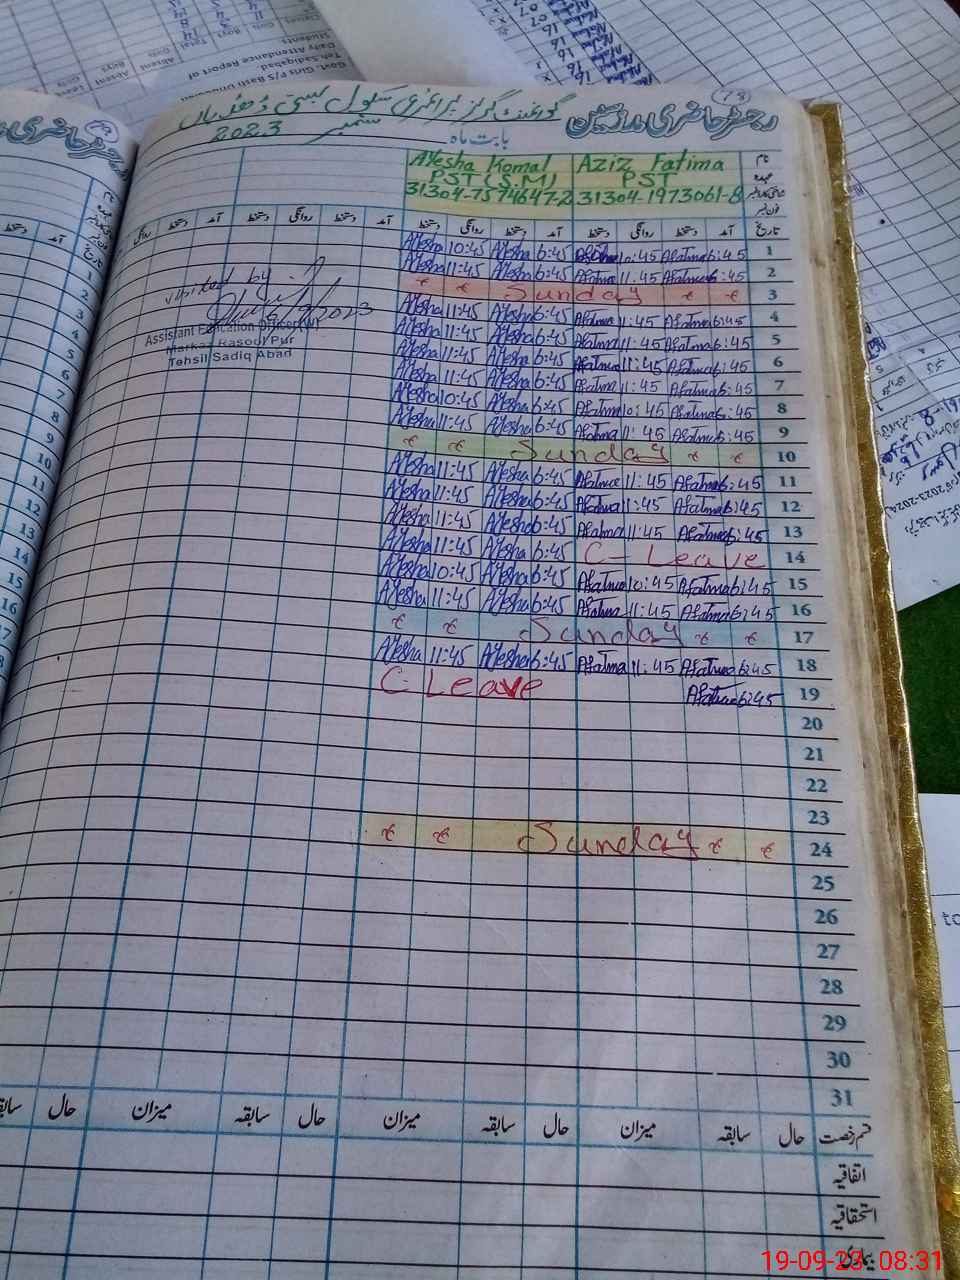 Govt. Girls P/S Basti
Teh.Sadiqabad
Daily Attendance Report of
Students
رجسٹر حاضری مدرسین
79
گورنمنٹ گرلز پرائمری سکول بستی
بابت ماہ ستمبر 2023
نام Aziz Fatima Ayesha Komal
عہدہ PST PST (S.M)
31304-1973061-8 31304-7574647-2
تاریخ آمد دستخط روانگی دستخط آمد دستخط روانگی دستخط آمد دستخط روانگی دستخط آمد دستخط روانگی
Ayesha 10:45 Ayesha 6:45 Afatma 10:45 Afatma 6:45 1
Ayesha 11:45 Ayesha 6:45 Afatma 11:45 Afatma 6:45 2
Sunday 3
Ayesha 11:45 Ayesha 6:45 Afatma 11:45 Afatma 6:45 4
Ayesha 11:45 Ayesha 6:45 Afatma 11:45 Afatma 6:45 5
Ayesha 11:45 Ayesha 6:45 Afatma 11:45 Afatma 6:45 6
Ayesha 11:45 Ayesha 6:45 Afatma 11:45 Afatma 6:45 7
Ayesha 10:45 Ayesha 6:45 Afatma 10:45 Afatma 6:45 8
Ayesha 11:45 Ayesha 6:45 Afatma 11:45 Afatma 6:45 9
Sunday 10
Ayesha 11:45 Ayesha 6:45 Afatma 11:45 Afatma 6:45 11
Ayesha 11:45 Ayesha 6:45 Afatma 11:45 Afatma 6:45 12
Ayesha 11:45 Ayesha 6:45 Afatma 11:45 Afatma 6:45 13
Ayesha 11:45 Ayesha 6:45 C- Leave 14
Ayesha 10:45 Ayesha 6:45 Afatma 10:45 Afatma 6:45 15
Ayesha 11:45 Ayesha 6:45 Afatma 11:45 Afatma 6:45 16
Sunday 17
Ayesha 11:45 Ayesha 6:45 Afatma 11:45 Afatma 6:45 18
C- Leave Afatma 6:45 19
20
21
22
23
Sunday 24
25
26
27
28
29
30
31
visited by
5/9/2023
Assistant Education Officer (W)
Markaz Rasool Pur
Tehsil Sadiq Abad
قسم رخصت حال سابقہ میزان حال سابقہ میزان حال سابقہ میزان حال سابقہ
اتفاقیہ
استحقاقیہ
بیماری
19-09-23 08:31